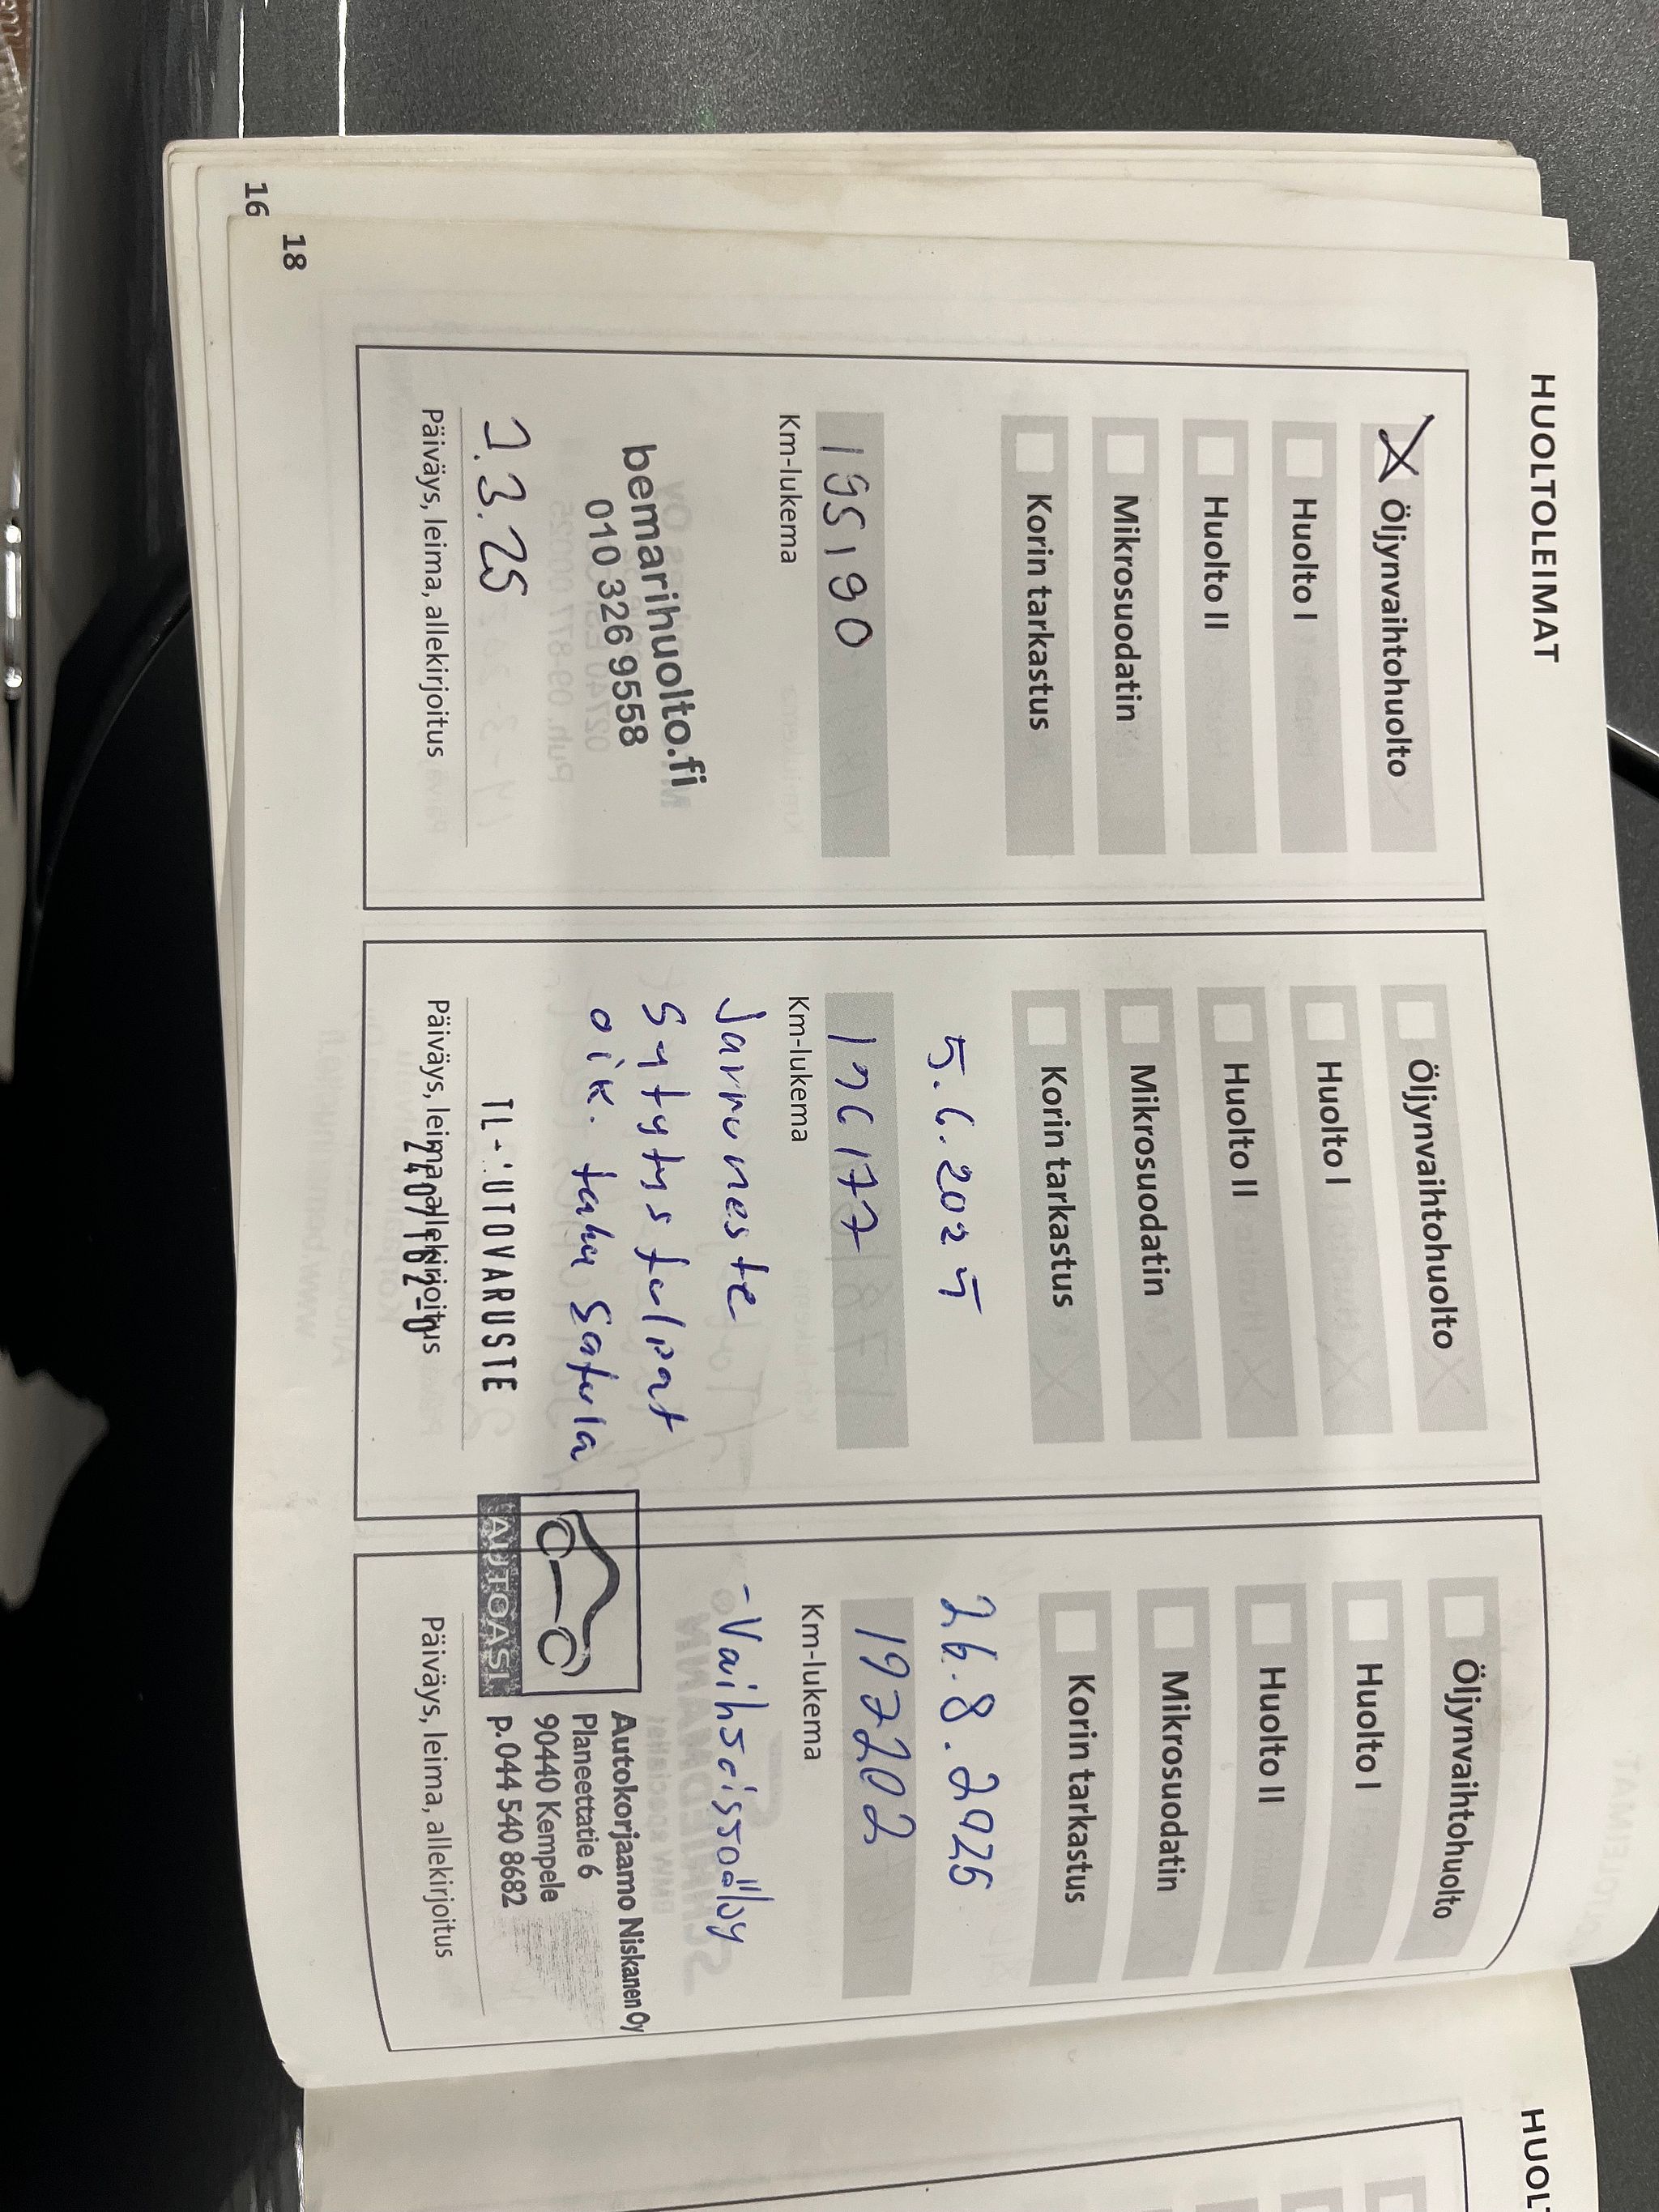 HUOLTOLEIMAT
Öljynvaihtohuolto
Huolto I
Huolto II
Mikrosuodatin
Korin tarkastus
195190
Km-lukema
bemarihuolto.fi
010 326 9558
1.3.25
Päiväys, leima, allekirjoitus
Öljynvaihtohuolto
Huolto I
Huolto II
Mikrosuodatin
Korin tarkastus
5.6.2025
196177
Km-lukema
Jarruneste
Sytytystulpat
oik. taka satula
TL-UTOVARUSTE
Päiväys, leima, allekirjoitus
2407162-0
Öljynvaihtohuolto
Huolto I
Huolto II
Mikrosuodatin
Korin tarkastus
26.8.2025
197202
Km-lukema
-Vaihteisto öljy
AUTOASI
Autokorjaamo Niskanen Oy
Planeettatie 6
90440 Kempele
p.044 540 8682
Päiväys, leima, allekirjoitus
16
18
HUOLT